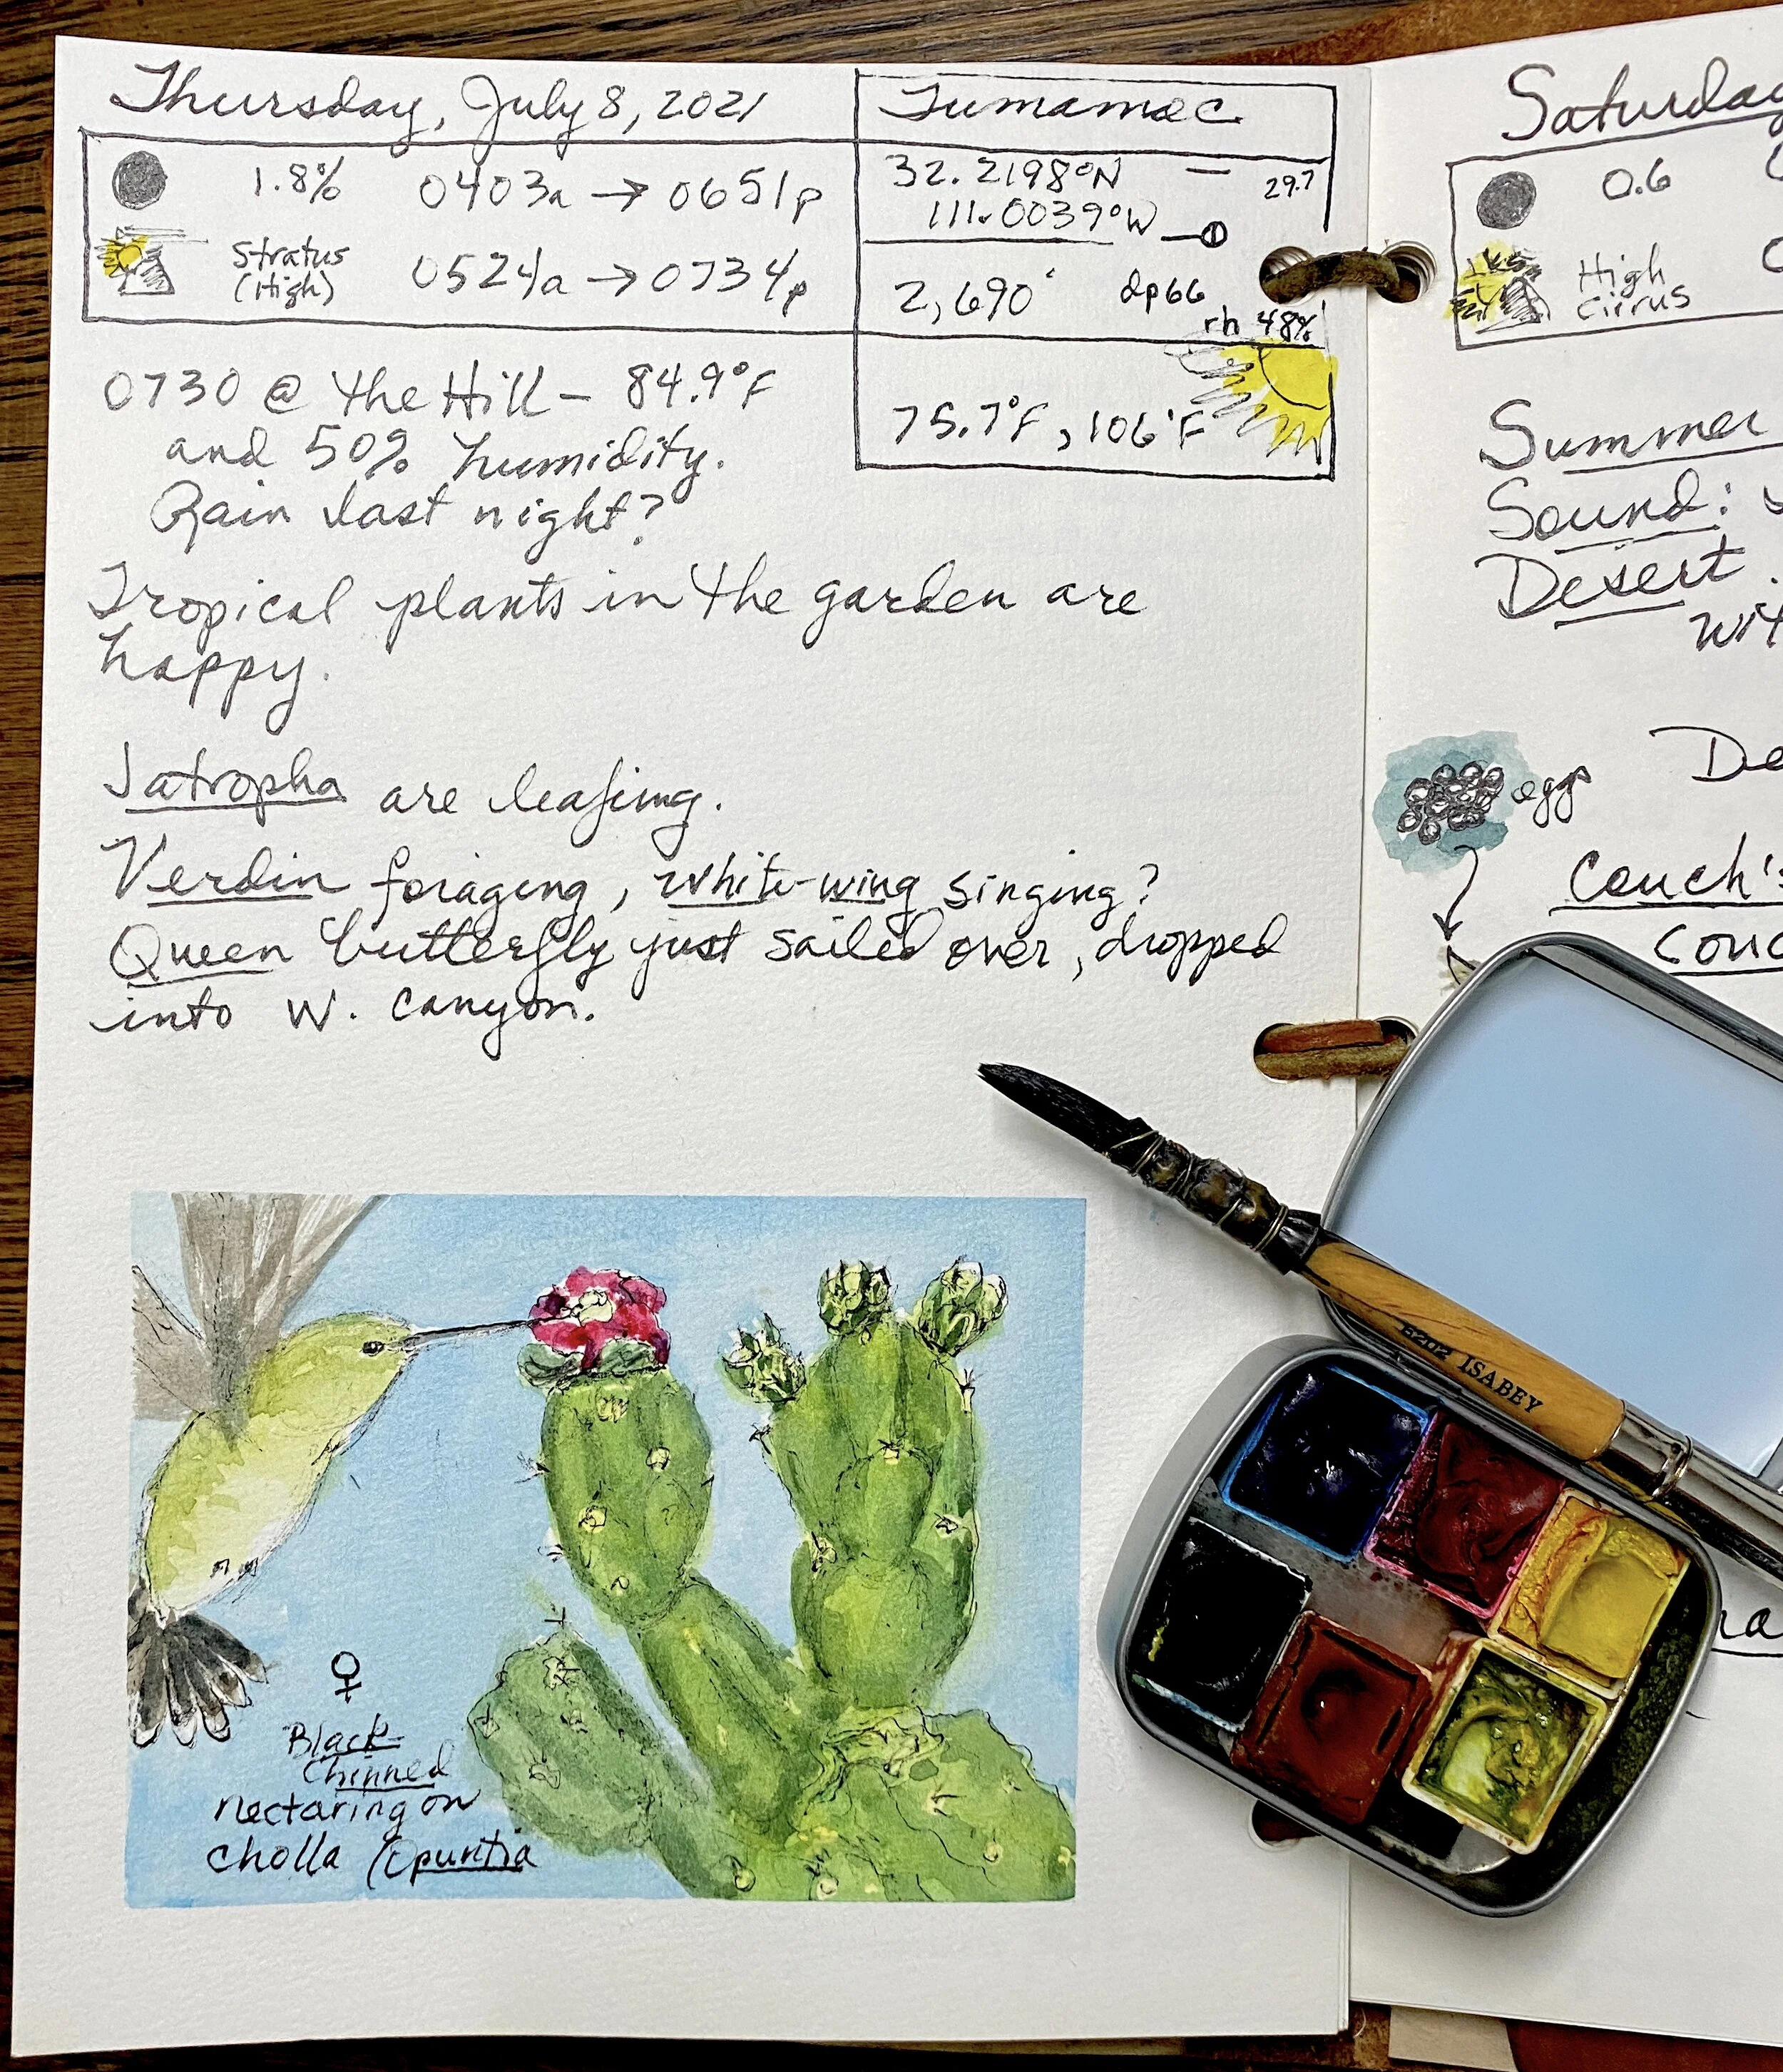 Thursday, July 8, 2021
Tumamoc
1.8% 0403a → 0651p
Stratus (High) 0524a → 0734p
32.2198°N
111.0039°W
29.7
2,690' dp66
rh 48%
75.7°F, 106°F
0730 @ the Hill – 84.9°F
and 50% humidity.
Rain last night?
Tropical plants in the garden are
happy.
Jatropha are leafing.
Verdin foraging, white-wing singing?
Queen butterfly just sailed over, dropped
into W. Canyon.
♀
Black-
Chinned
nectaring on
cholla (Opuntia
Saturday
0.6
High
Cirrus
Summer
Sound:
Desert
wit
eggs
De
Couch's
Couc
E202 ISABEY